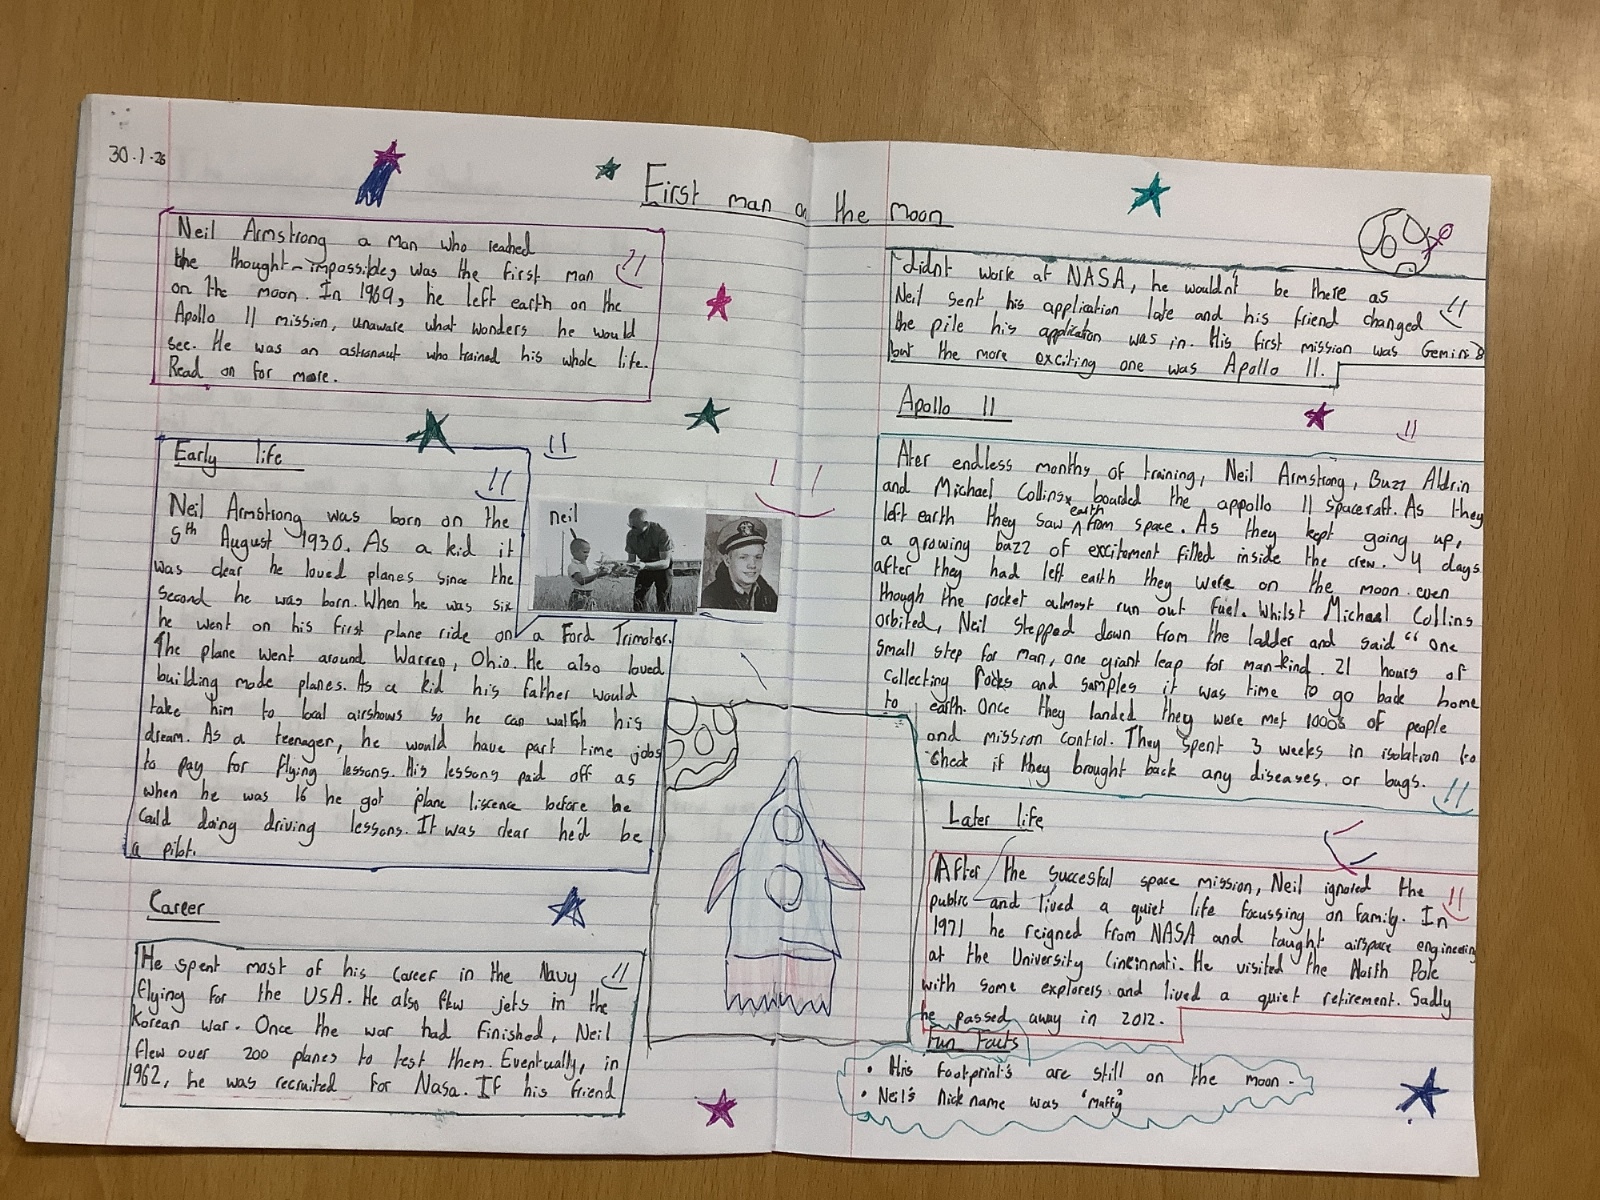 30.1.26
First man on the moon
Neil Armstrong a man who reached
the thought-impossible, was the first man
on the moon. In 1969, he left earth on the
Apollo 11 mission, unaware what wonders he would
see. He was an astronaut who trained his whole life.
Read on for more.
Early life
Neil Armstrong was born on the
5th August 1930. As a kid it
was clear he loved planes since the
second he was born. When he was six
he went on his first plane ride on a Ford Trimotor.
The plane went around Warren, Ohio. He also loved
building mode planes. As a kid his father would
take him to local airshows so he can watch his
dream. As a teenager, he would have part time jobs
to pay for flying lessons. His lessons paid off as
when he was 16 he got plane liscence before he
could doing driving lessons. It was clear he'd be
a pilot.
neil
Career
He spent most of his career in the Navy
flying for the USA. He also flew jets in the
Korean war. Once the war had finished, Neil
flew over 200 planes to test them. Eventually, in
1962, he was recruited for Nasa. If his friend
didnt work at NASA, he wouldn't be there as
Neil sent his application late and his friend changed
the pile his application was in. His first mission was Gemini 8
but the more exciting one was Apollo 11.
Apollo 11
Ater endless months of training, Neil Armstrong, Buzz Aldrin
and Michael Collins boarded the appollo 11 spacecraft. As they
left earth they saw earth from space. As they kept going up,
a growing bazz of excitement filled inside the crew. 4 days
after they had left earth they were on the moon even
though the rocket almost run out fuel. Whilst Michael Collins
orbited, Neil stepped down from the ladder and said "one
small step for man, one giant leap for man-kind. 21 hours of
collecting rocks and samples it was time to go back home
to earth. Once they landed they were met 1000s of people
and mission control. They spent 3 weeks in isolation to
check if they brought back any diseases or bugs.
Later life
After the succesful space mission, Neil ignored the
public and lived a quiet life focussing on family. In
1971 he reigned from NASA and taught airspace engineering
at the University Cincinnati. He visited the North Pole
with some explorers and lived a quiet retirement. Sadly
he passed away in 2012.
Fun Facts
• His footprint's are still on the moon.
• Neil's nick name was